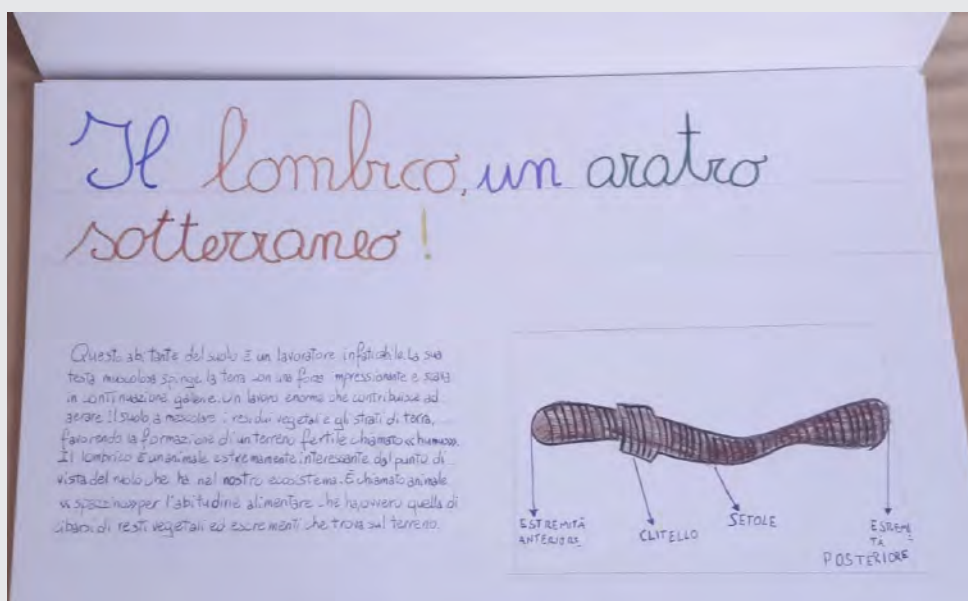 Il lombrico, un aratro
sotterraneo!
Questo abitante del suolo è un lavoratore infaticabile. La sua
testa muscolosa spinge la terra con una forza impressionante e scava
in continuazione gallerie. Un lavoro enorme che contribuisce ad
aerare il suolo a mescolare i residui vegetali e gli strati di terra,
favorendo la formazione di un terreno fertile chiamato «humus».
Il lombrico è un animale estremamente interessante dal punto di
vista del ruolo che ha nel nostro ecosistema. È chiamato animale
«spazzino» per l'abitudine alimentare che ha, ovvero quella di
cibarsi di resti vegetali ed escrementi che trova sul terreno.
ESTREMITÀ
ANTERIORE
CLITELLO
SETOLE
ESREMI
TÀ
POSTERIORE